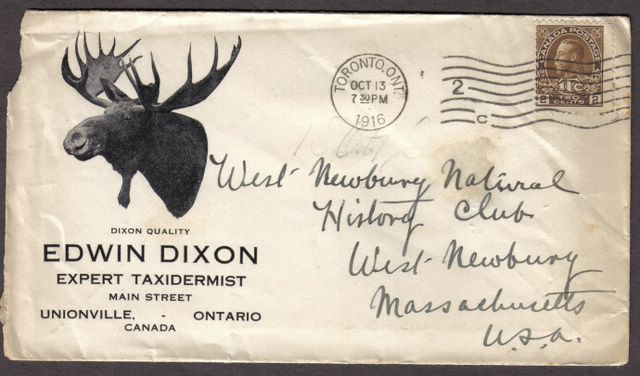 DIXON QUALITY
EDWIN DIXON
EXPERT TAXIDERMIST
MAIN STREET
UNIONVILLE, - ONTARIO
CANADA
TORONTO, ONT.
OCT 13
7 30 PM
1916
2
C
CANADA POSTAGE
1TC
2 TWO CENTS 2
West Newbury Natural
History Club
West Newbury
Massachusetts
U.S.A.